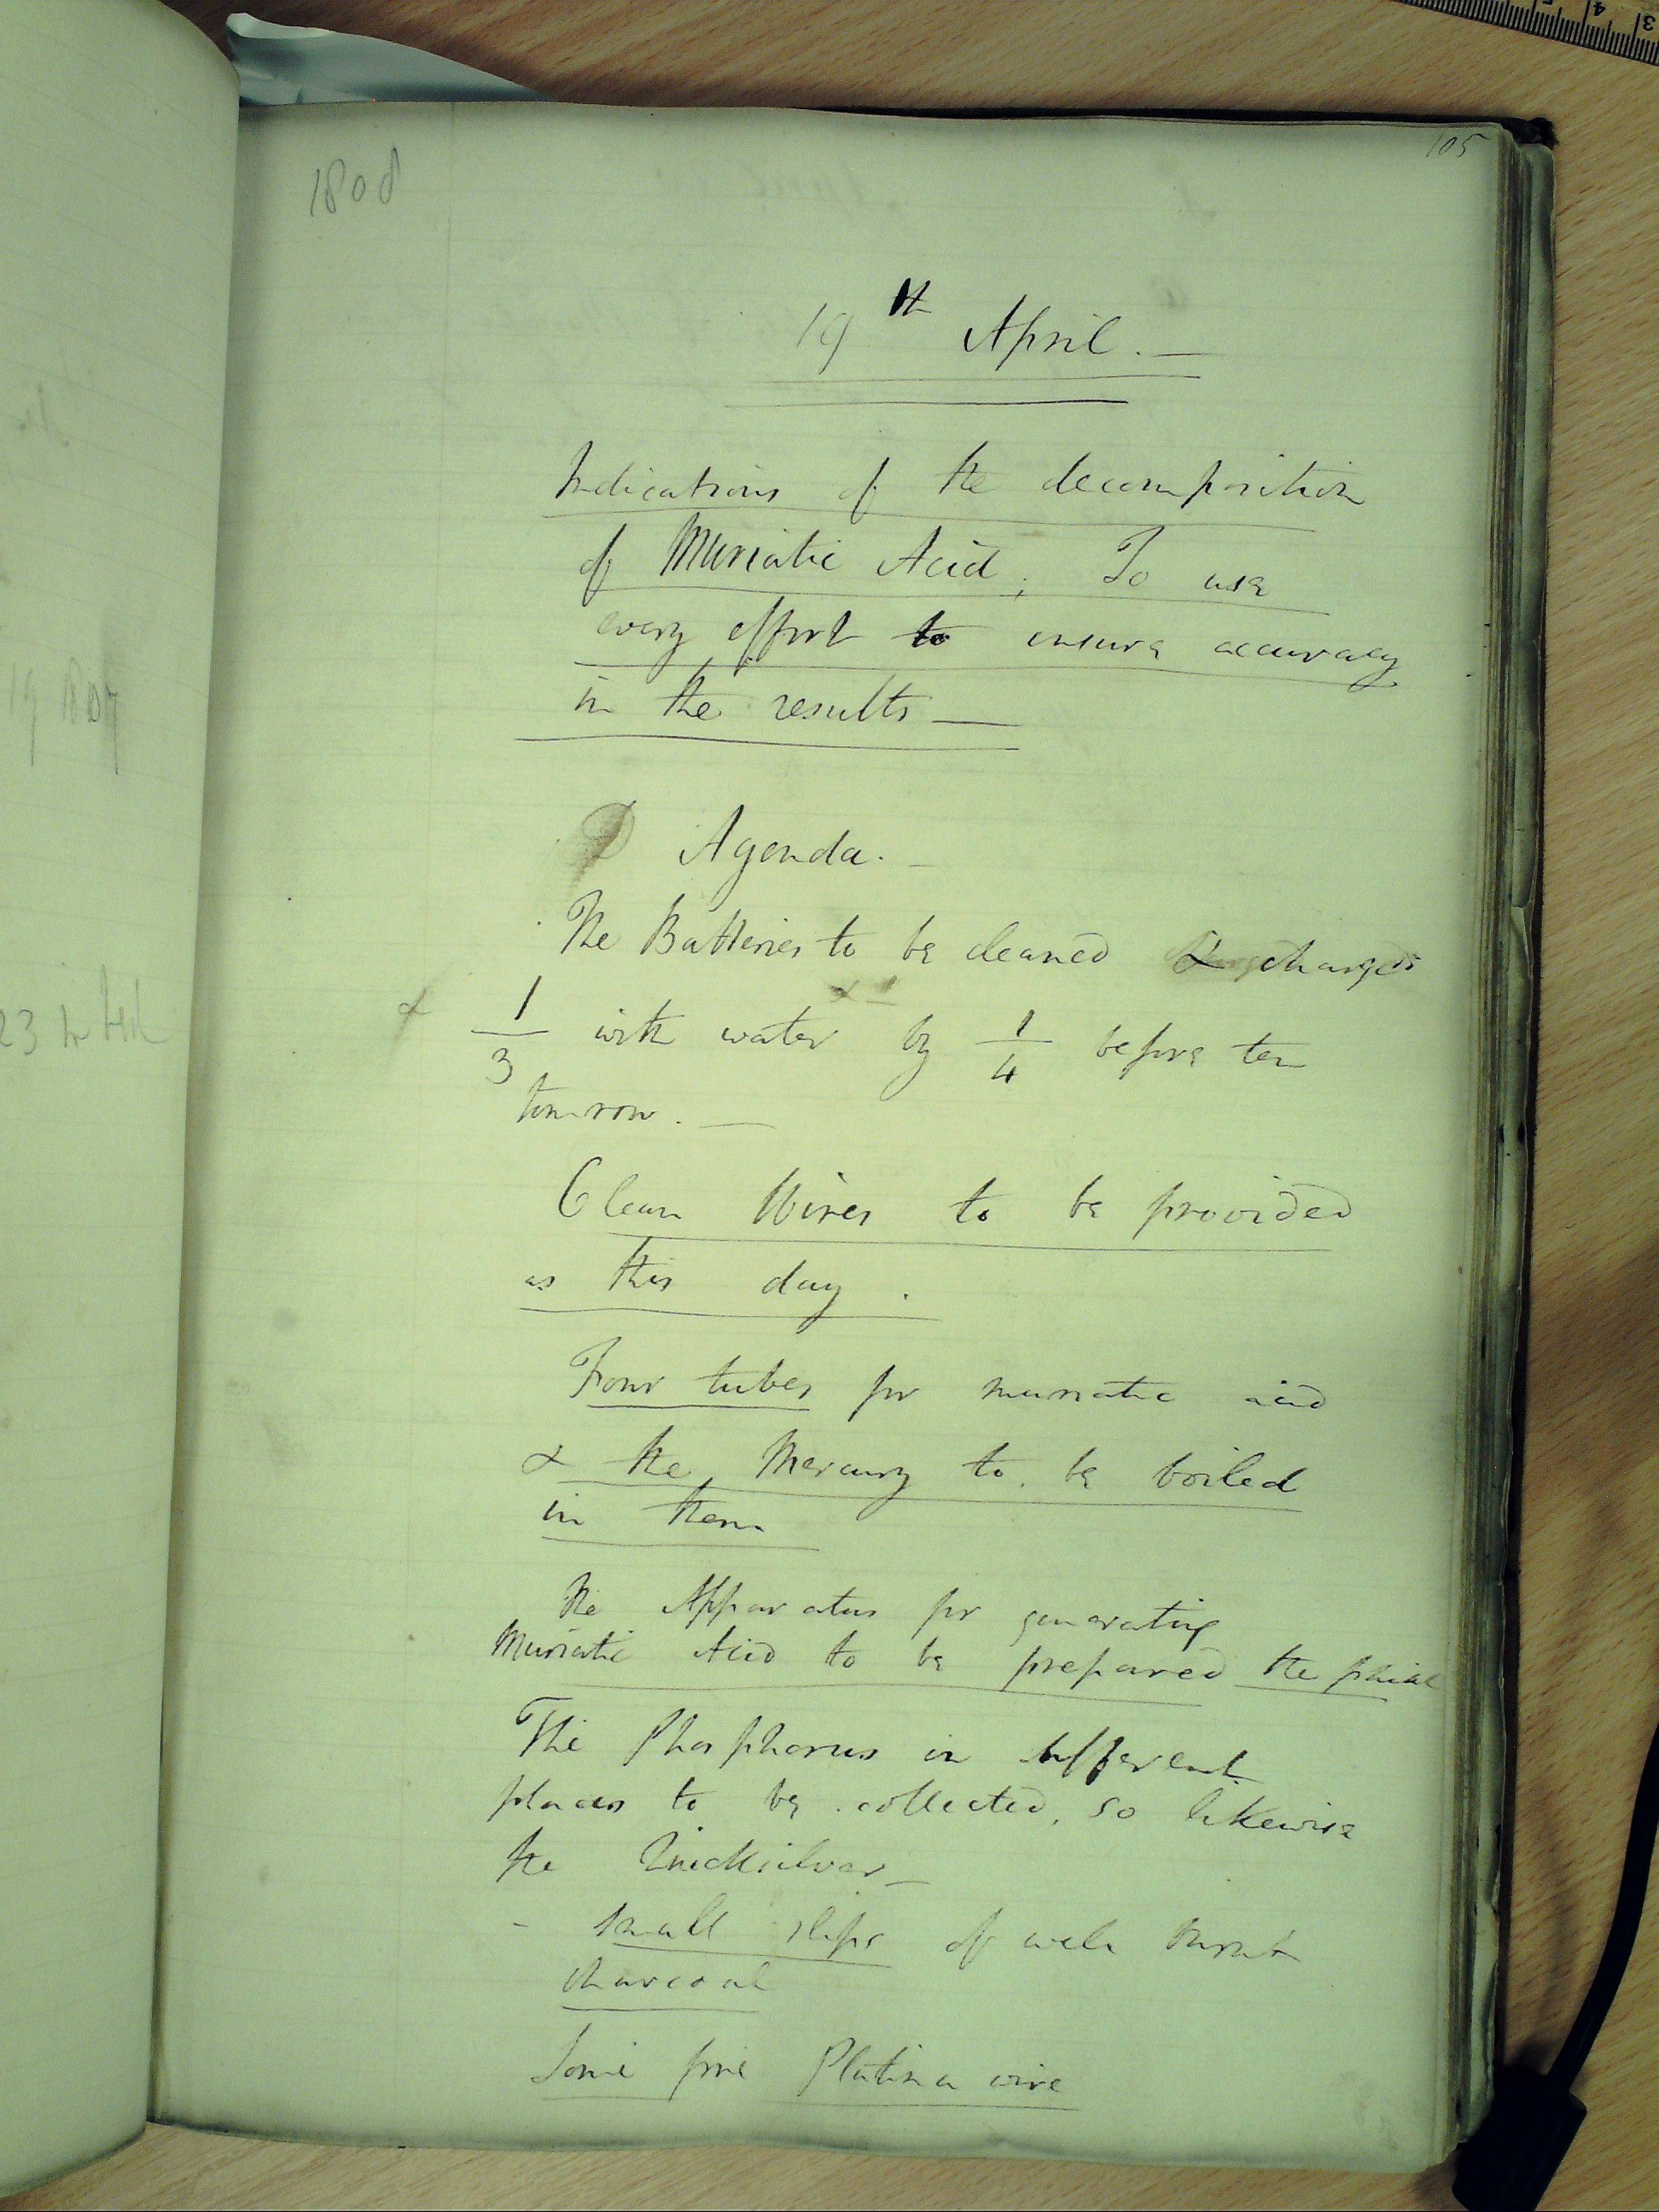 105
1808
19th April. —
Indications of the decomposition
of Muriatic Acid; To use
every effort to ensure accuracy
in the results —
Agenda. —
The Batteries to be cleaned & charged
& 1/3 with water by 1/4 before ten
tomrow. —
Clean Wires to be provided
as this day.
Four tubes for muriatic acid
& the Mercury to be boiled
in them
The Apparatus for generating
Muriatic Acid to be prepared the phial
The Phosphorus in different
places to be collected, so likewise
the Quicksilver —
- small slips of well burnt
charcoal
Some fine Platina wire
19 1807
23